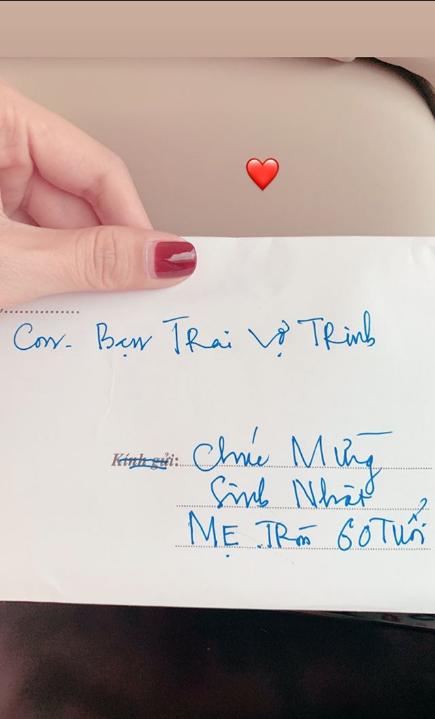 Con. Bạn Trai Vợ Trinh
Kính gửi: Chúc Mừng
Sinh Nhật
MẸ Tròn 60 Tuổi